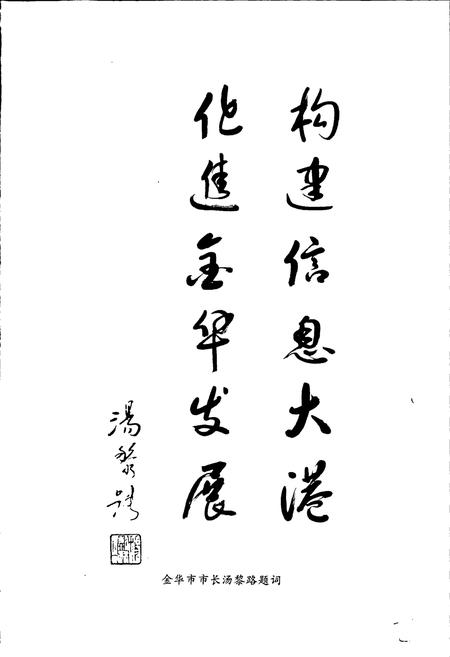 构建信息大港
促进金华发展
汤黎路
金华市市长汤黎路题词